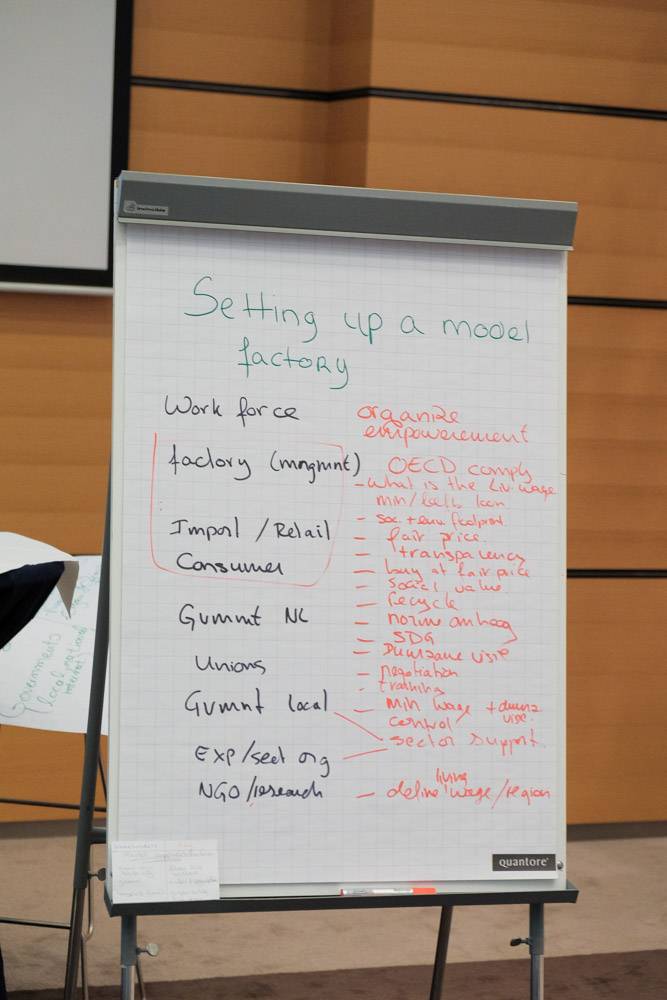 Setting up a model
factory
Work force
organize
empowerement
factory (mngmnt)
OECD comply
- what is the Liv. wage
min/
- soc. + env. footprint
Import / Retail
- fair price
- transparency
Consumer
- buy at fair price
- social value
- recycle
Gvmnt NL
- norm omhoog
- SDG
- Duurzame visie
Unions
- negotiation
- training
Gvmnt local
- Min wage + duurz
control visie.
sector support
EXP/sect org
NGO/research
- define living wage/region
quantore
Governments
local national